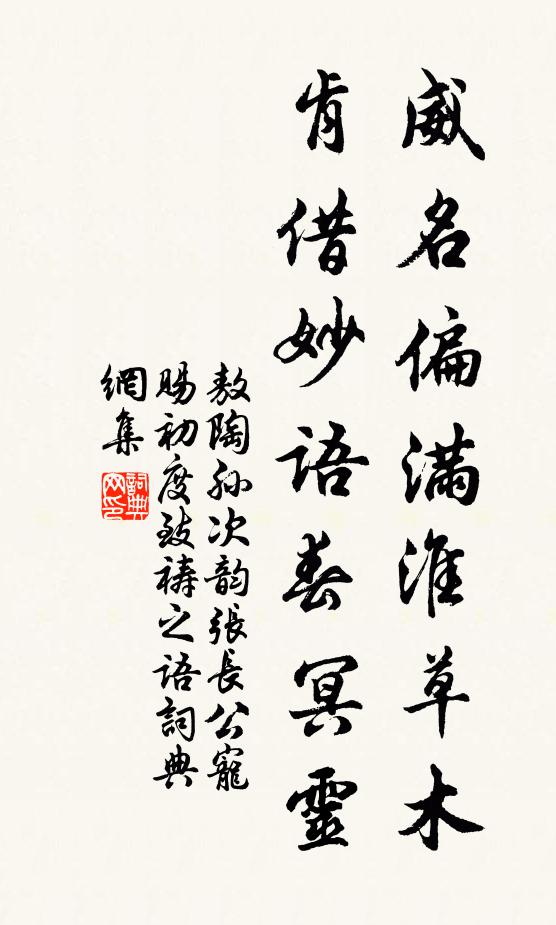 威名偏滿淮草木
肯借妙語春冥靈
敖陶孫次韵張長公寵
賜初度致禱之語詞典
網集
詞典網印